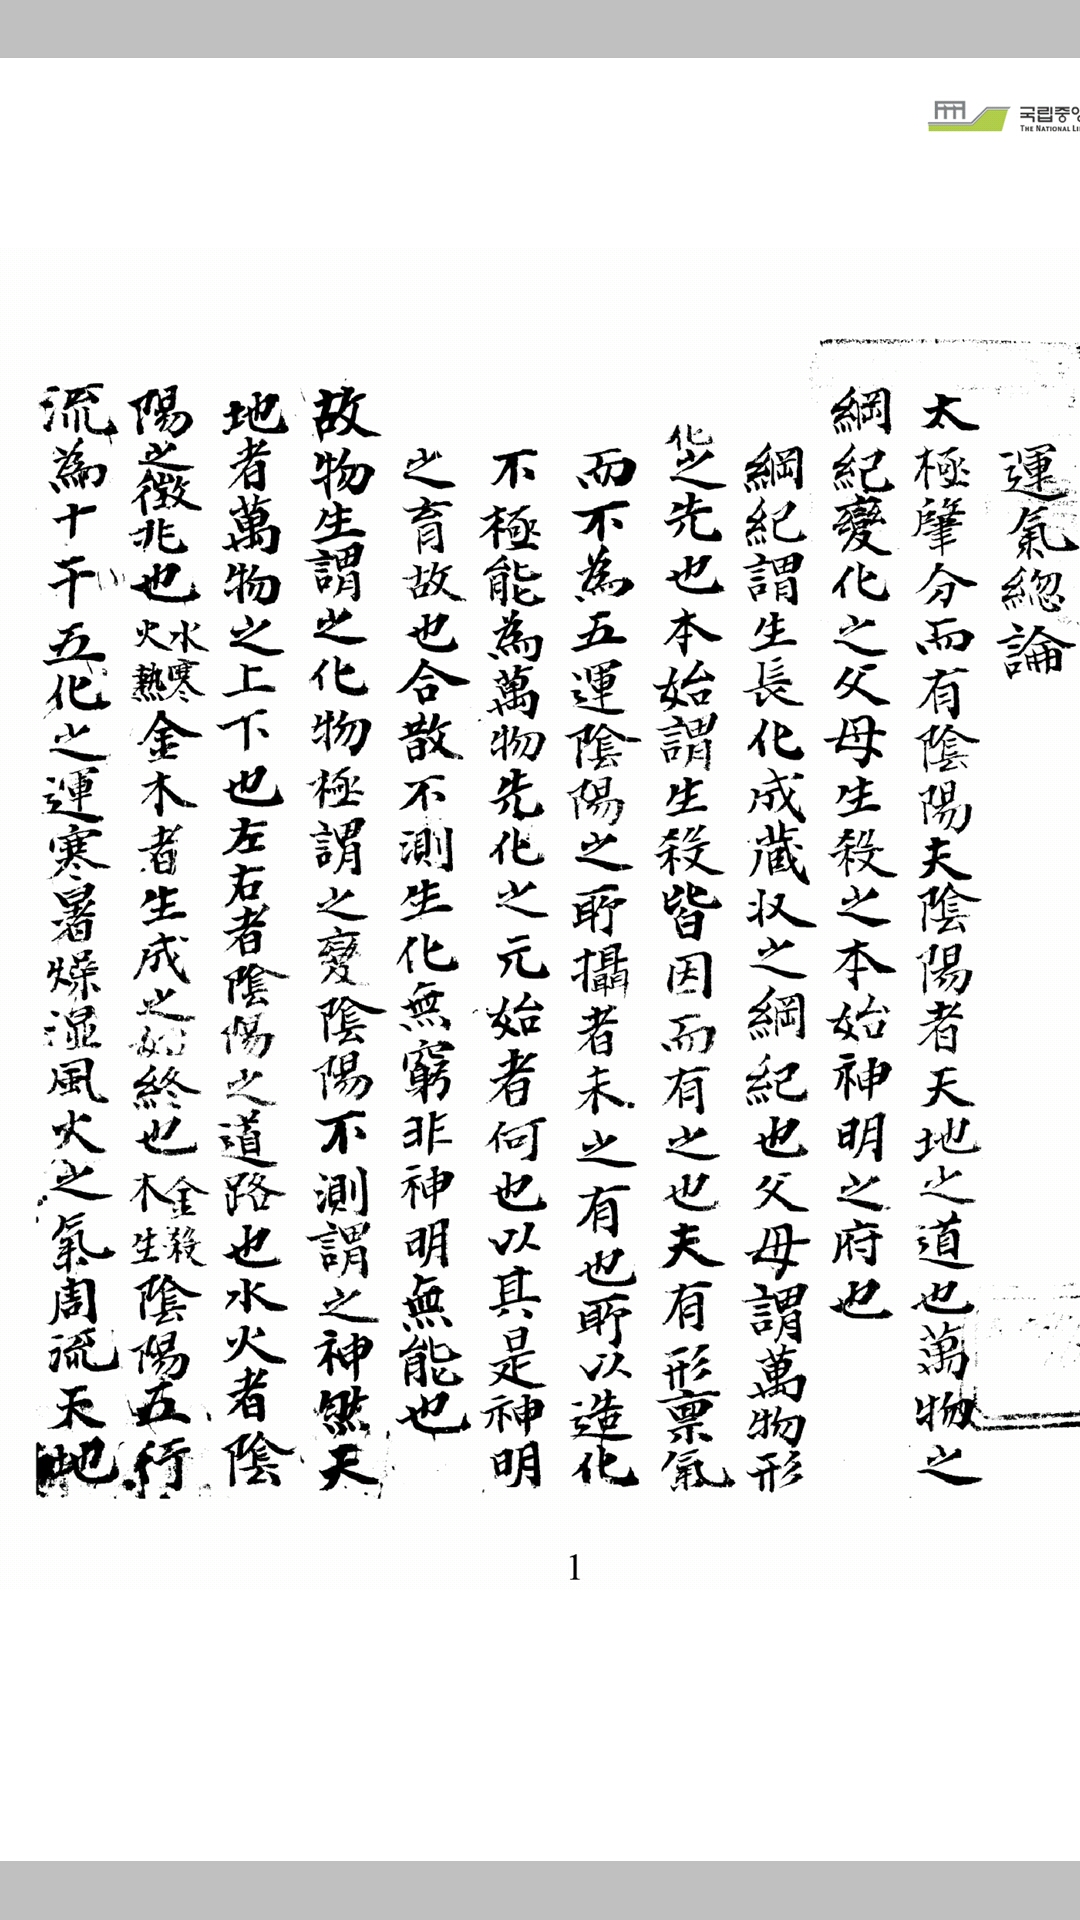 국립중앙
THE NATIONAL LI
運氣總論
太極肇分而有陰陽夫陰陽者天地之道也萬物之
綱紀變化之父母生殺之本始神明之府也
綱紀謂生長化成藏収之綱紀也父母謂萬物形
化之先也本始謂生殺皆因而有之也夫有形禀氣
而不為五運陰陽之所攝者未之有也所以造化
不極能為萬物先化之元始者何也以其是神明
之育故也合散不測生化無窮非神明無能也
故物生謂之化物極謂之變陰陽不測謂之神然天
地者萬物之上下也左右者陰陽之道路也水火者陰
陽之徵兆也水寒火熱金木者生成之始終也金殺木生陰陽五行
流為十干五化之運寒暑燥湿風火之氣周流天地
1